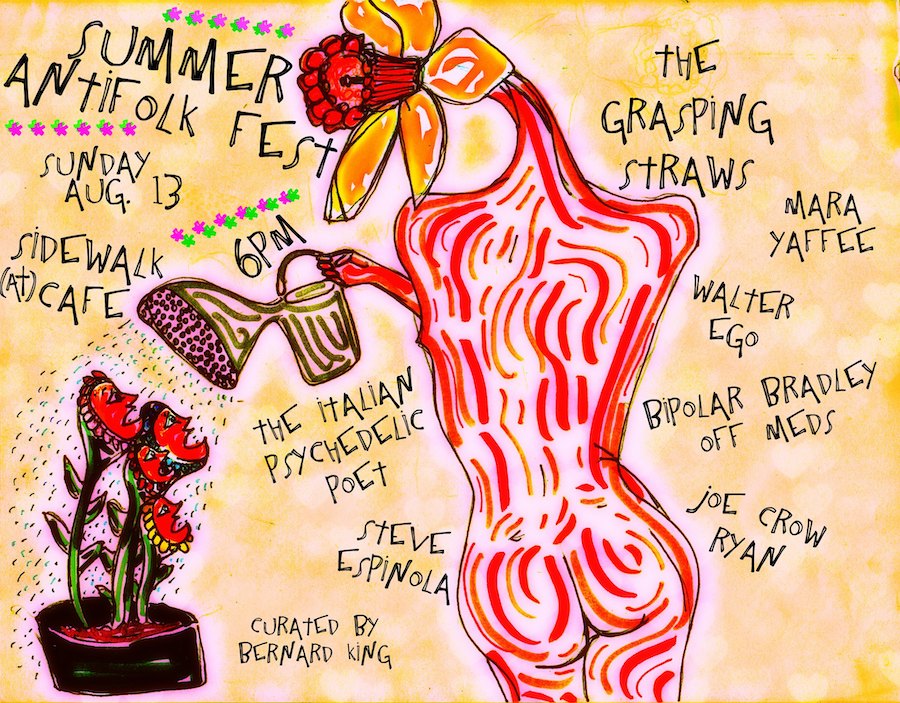 SUMMER
ANTIFOLK
FEST
SUNDAY
AUG. 13
6PM
SIDEWALK
(AT) CAFE
THE
GRASPING
STRAWS
MARA
YAFFEE
WALTER
EGO
BIPOLAR BRADLEY
OFF MEDS
JOE CROW
RYAN
THE ITALIAN
PSYCHEDELIC
POET
STEVE
ESPINOLA
CURATED BY
BERNARD KING